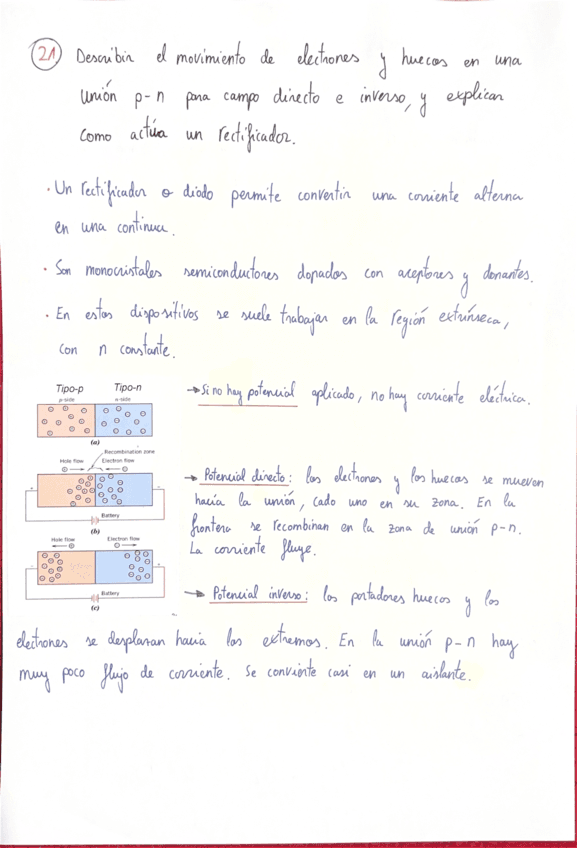 21 Describir el movimiento de electrones y huecos en una
unión p-n para campo directo e inverso, y explicar
como actúa un rectificador.
· Un rectificador o diodo permite convertir una corriente alterna
en una continua.
· Son monocristales semiconductores dopados con aceptores y donantes.
· En estos dispositivos se suele trabajar en la región extrínseca,
con n constante.
Tipo-p Tipo-n
p-side n-side
(a)
→ Si no hay potencial aplicado, no hay corriente eléctrica.
Recombination zone
Hole flow Electron flow
Battery
(b)
→ Potencial directo: los electrones y los huecos se mueven
hacia la unión, cada uno en su zona. En la
frontera se recombinan en la zona de unión p-n.
La corriente fluye.
Hole flow Electron flow
Battery
(c)
→ Potencial inverso: los portadores huecos y los
electrones se desplazan hacia los extremos. En la unión p-n hay
muy poco flujo de corriente. Se convierte casi en un aislante.